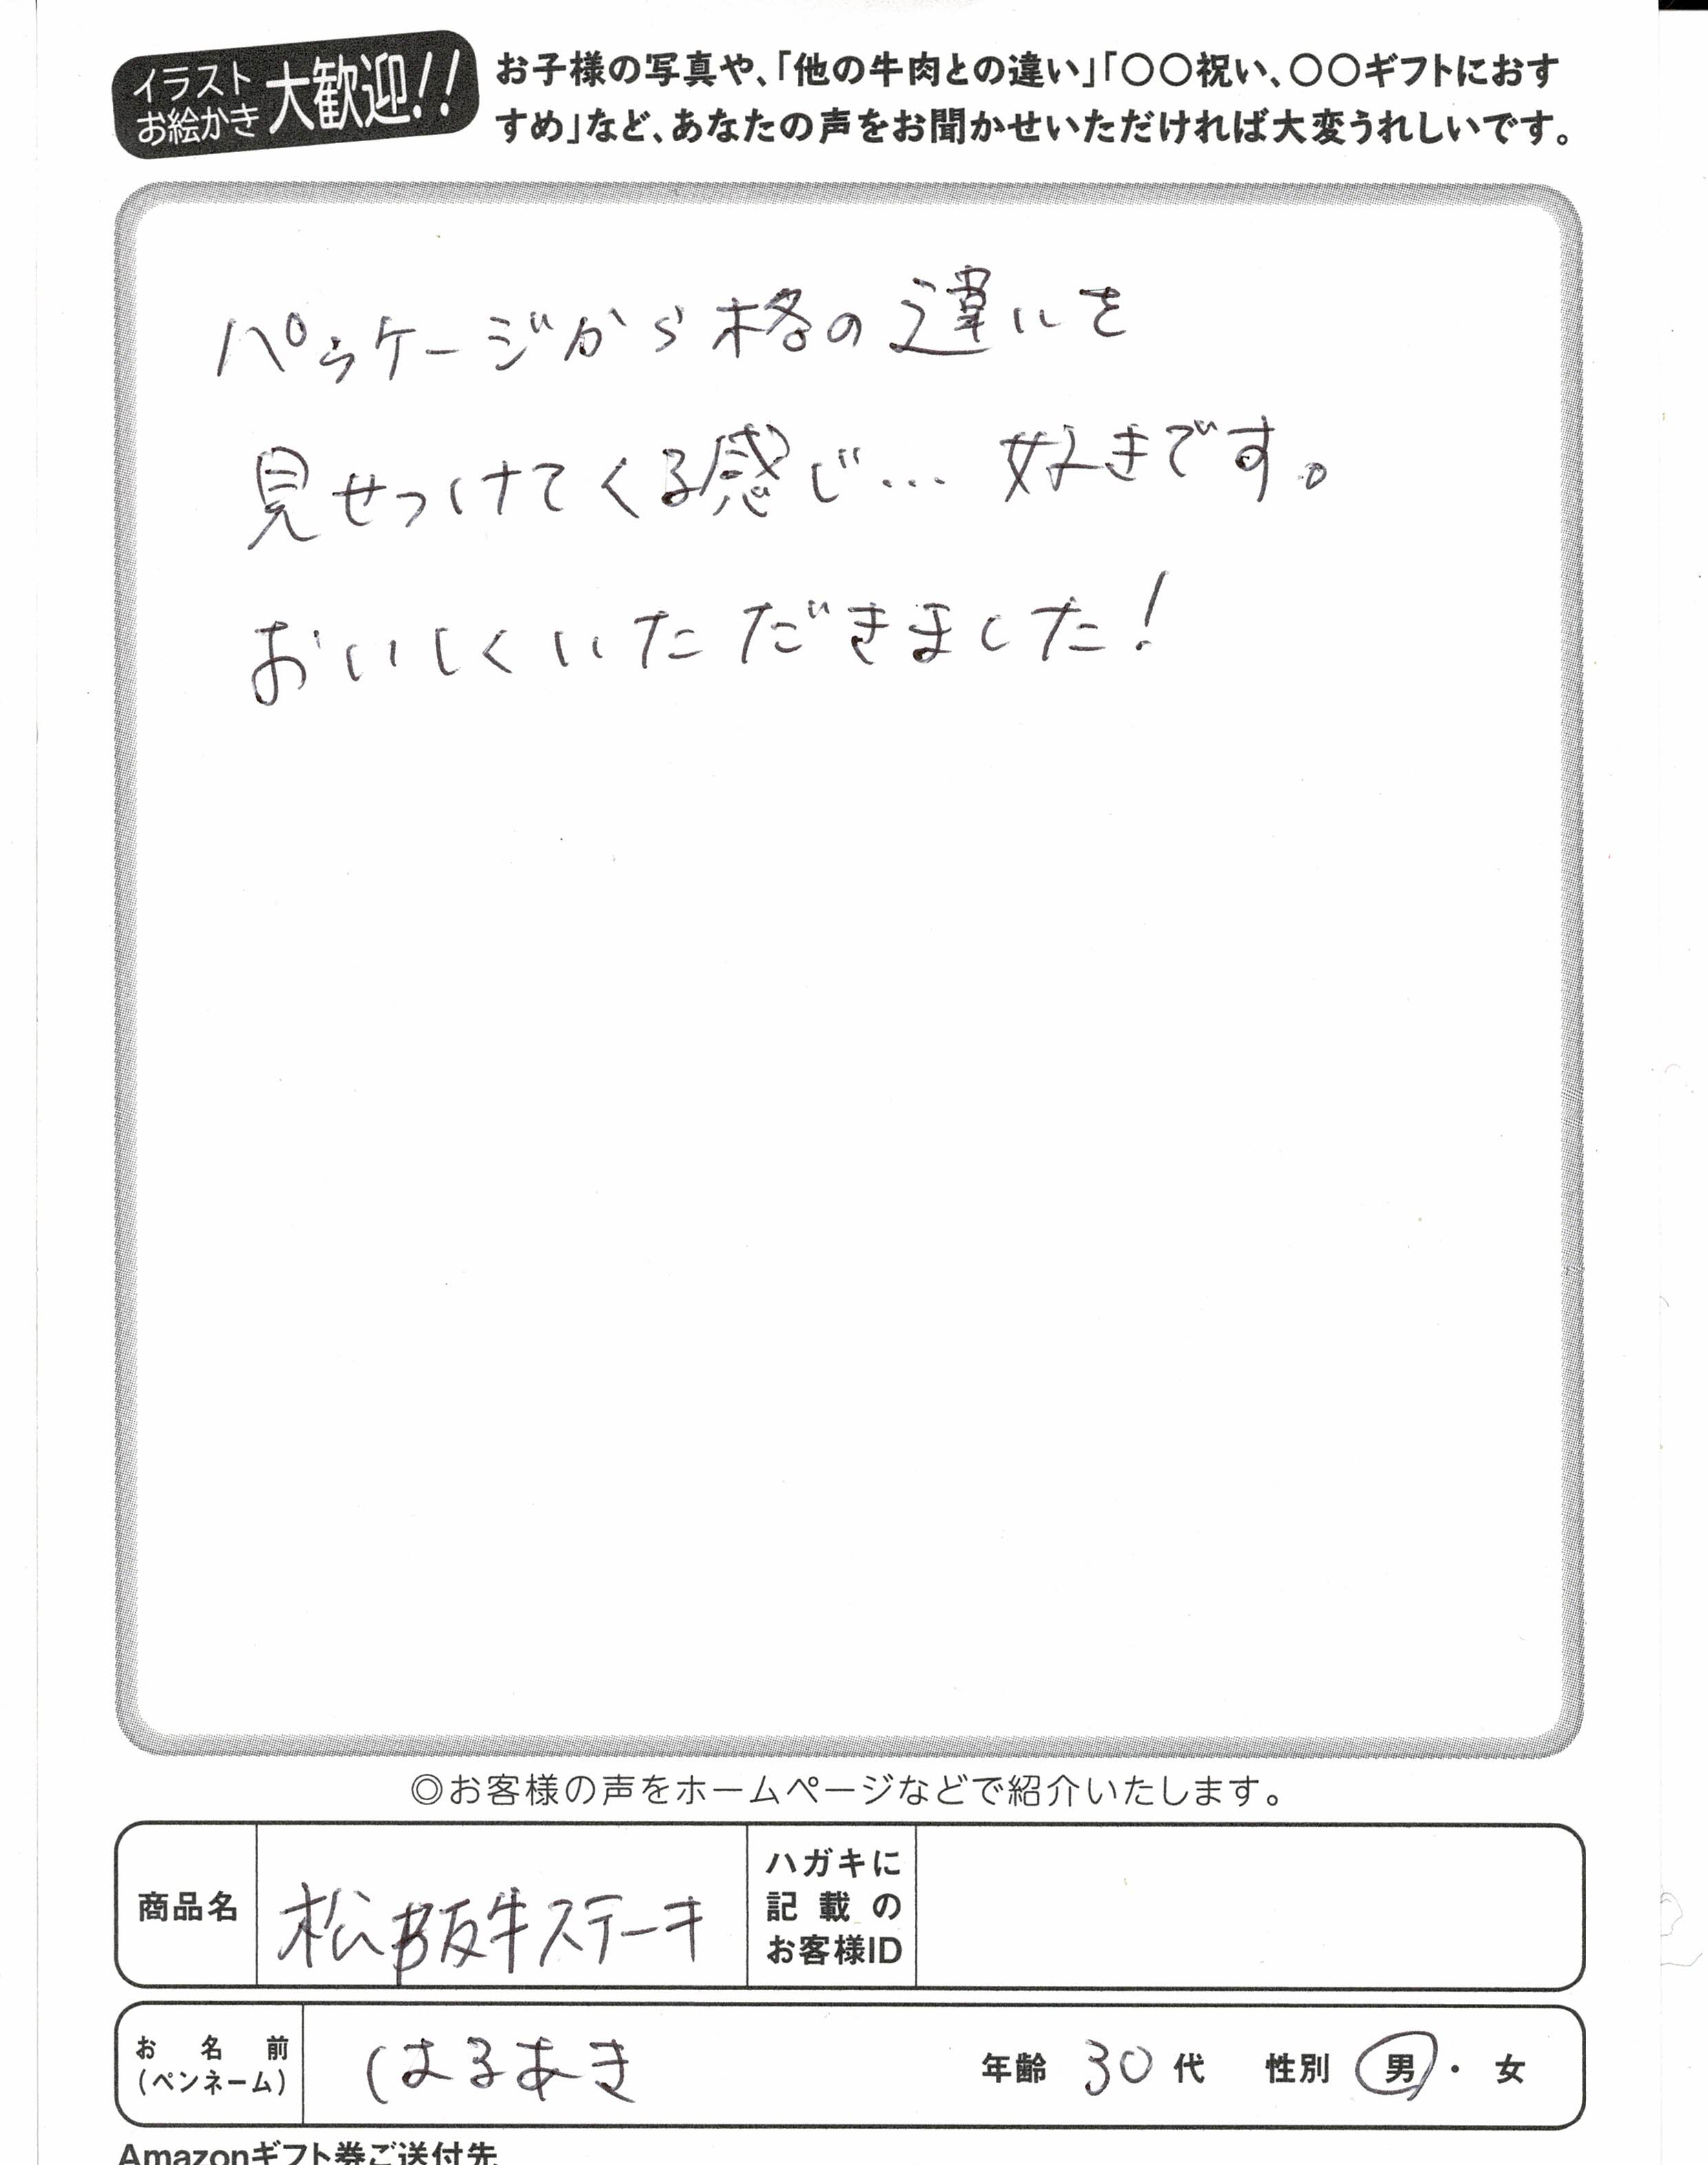 イラスト
お絵かき
大歓迎!!
お子様の写真や、「他の牛肉との違い」「○○祝い、○○ギフトにおす
すめ」など、あなたの声をお聞かせいただければ大変うれしいです。
パッケージから格の違いを
見せつけてくる感じ… 好きです。
おいしくいただきました!
◎お客様の声をホームページなどで紹介いたします。
商品名
松阪牛ステーキ
ハガキに
記載の
お客様ID
お名前
(ペンネーム)
はるあき
年齢 30代 性別 男・女
Amazonギフト券ご送付先